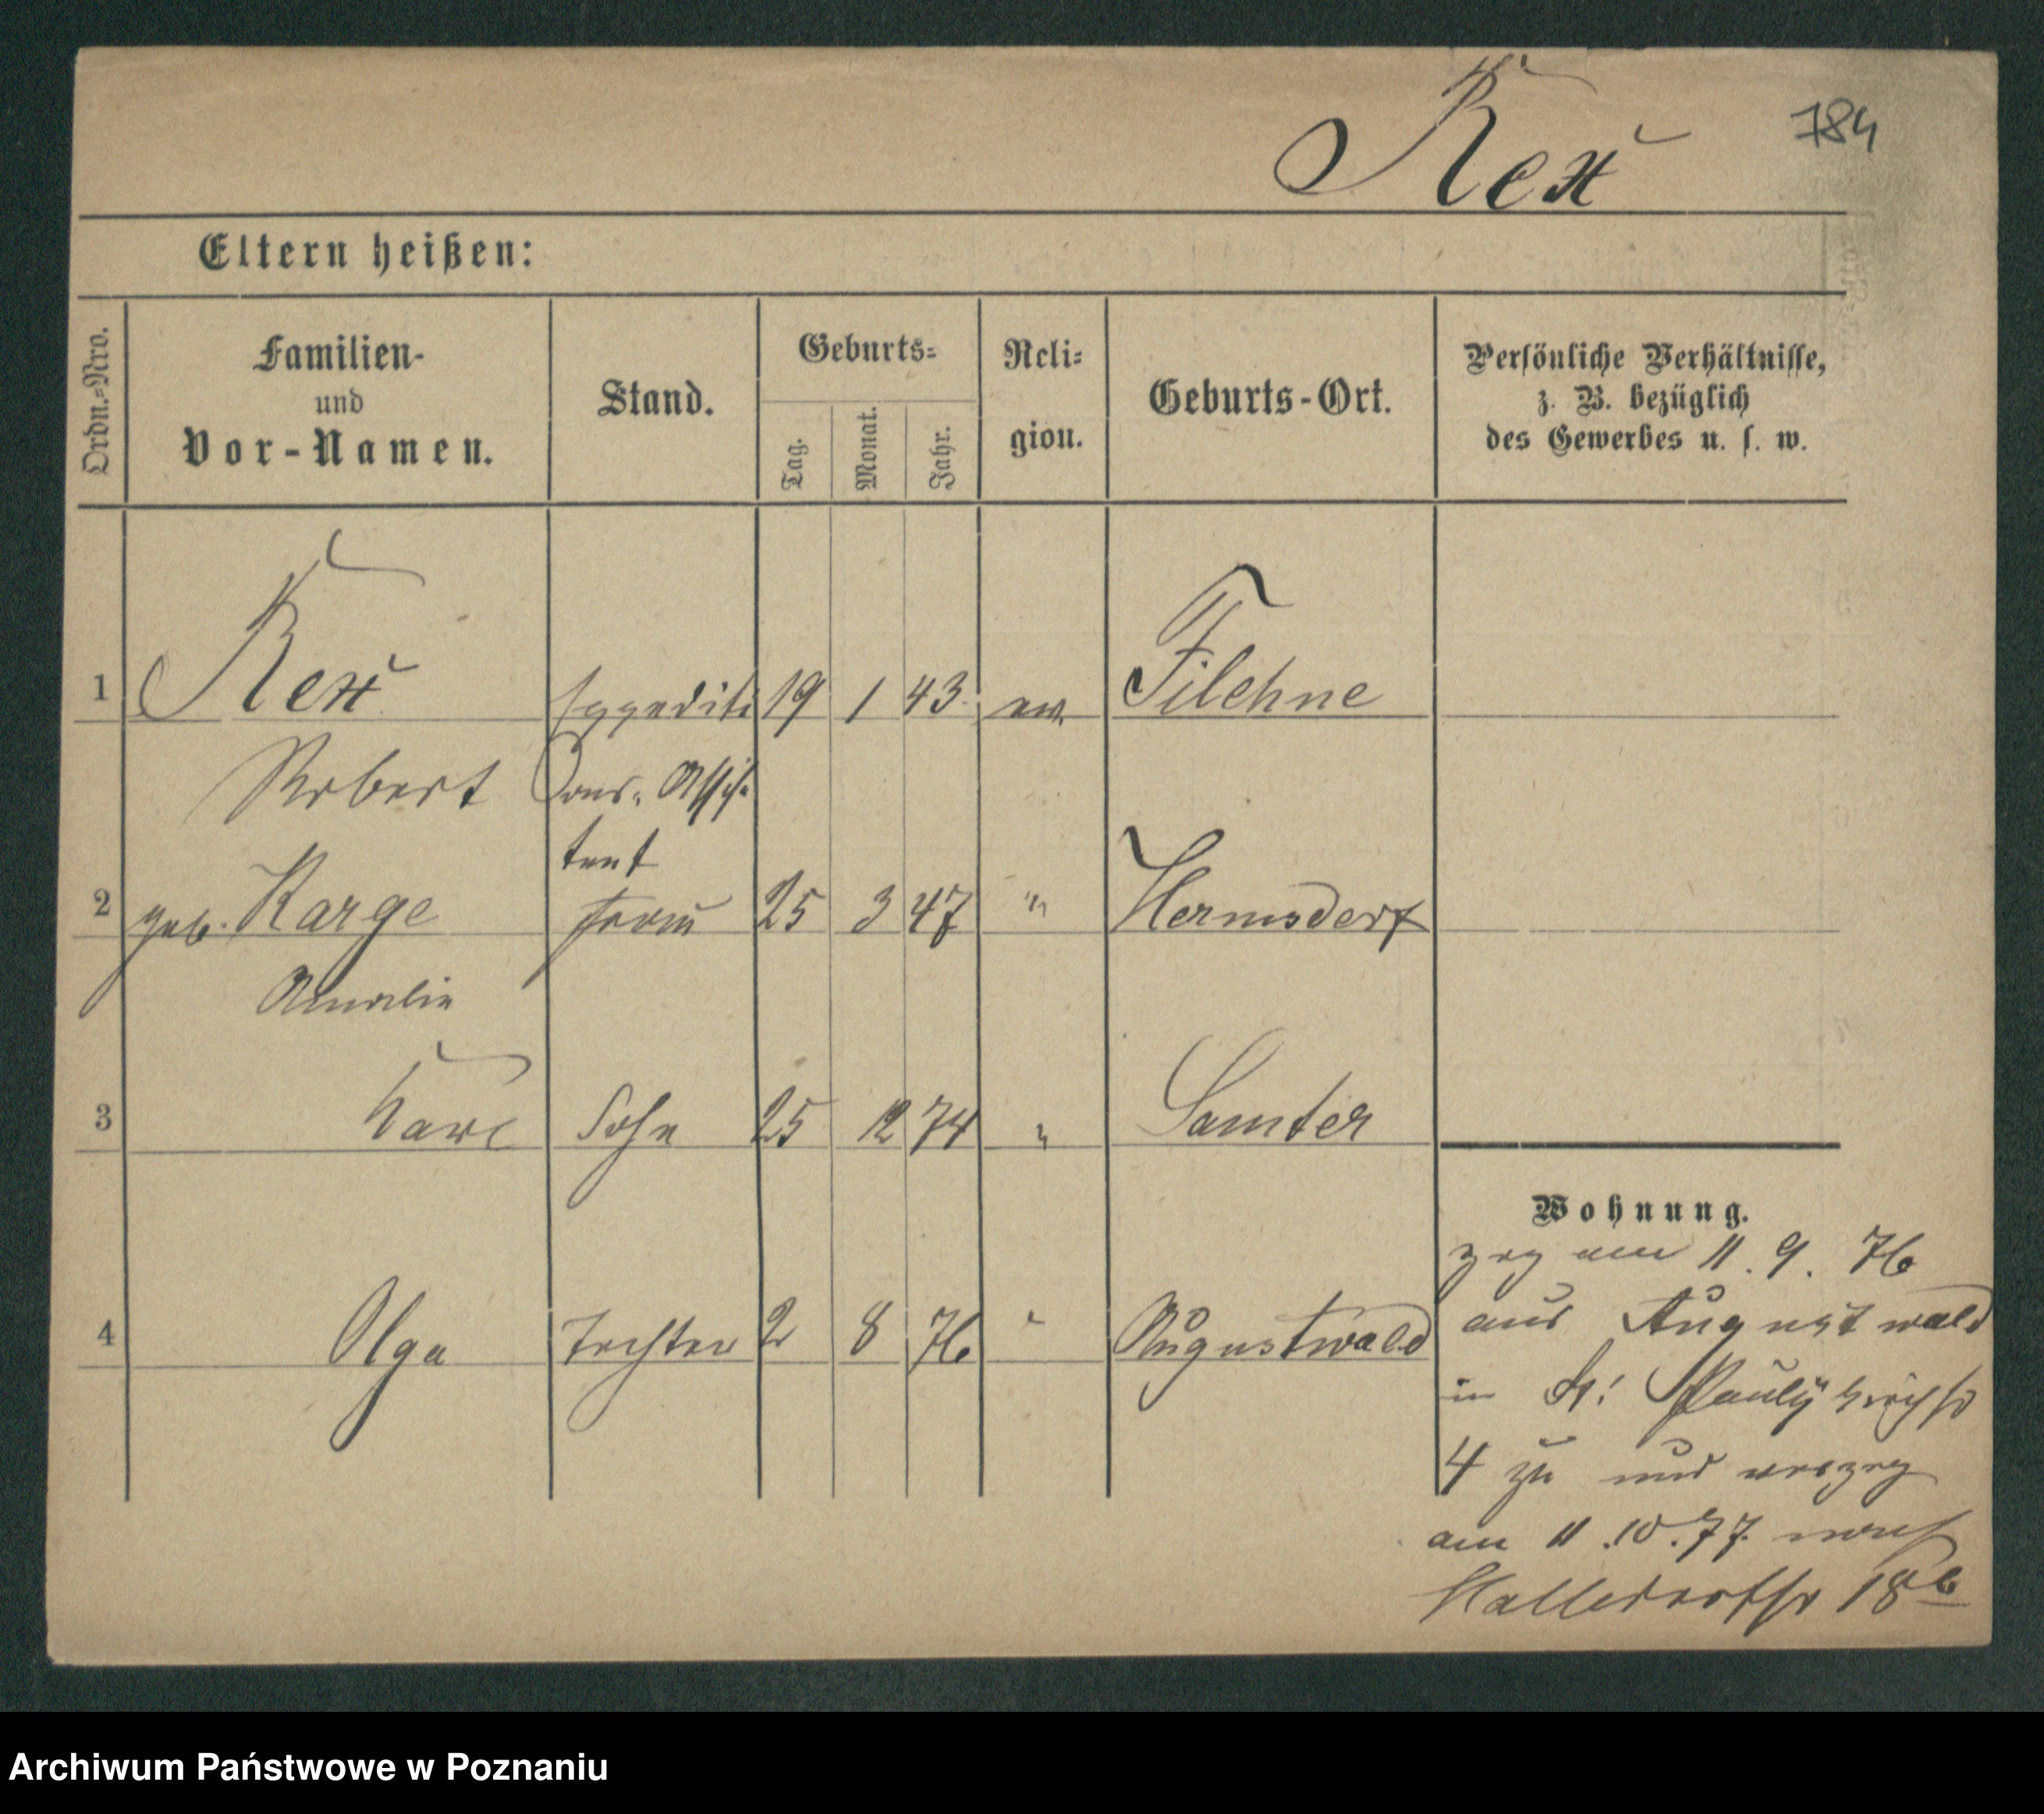 Rex
784
Eltern heißen:
Ordn.=Nro.
Familien-
und
Vor-Namen.
Stand.
Geburts=
Tag.
Monat.
Jahr.
Reli=
gion.
Geburts-Ort.
Persönliche Verhältnisse,
z. B. bezüglich
des Gewerbes u. s. w.
1 Rex Expediti 19 1 43 ev. Filehne
Robert ons. Assis
tent
2 geb. Karge Frau 25 3 47 " Hermsdorf
Amalie
3 Karl Sohn 25 12 74 " Samter
4 Olga Tochter 2 8 76 " Augustwald
Wohnung.
zog am 11. 9. 76
aus Augustwald
in St. Pauly
4 zu und verzog
am 11.10.77. nach
18b
Archiwum Państwowe w Poznaniu